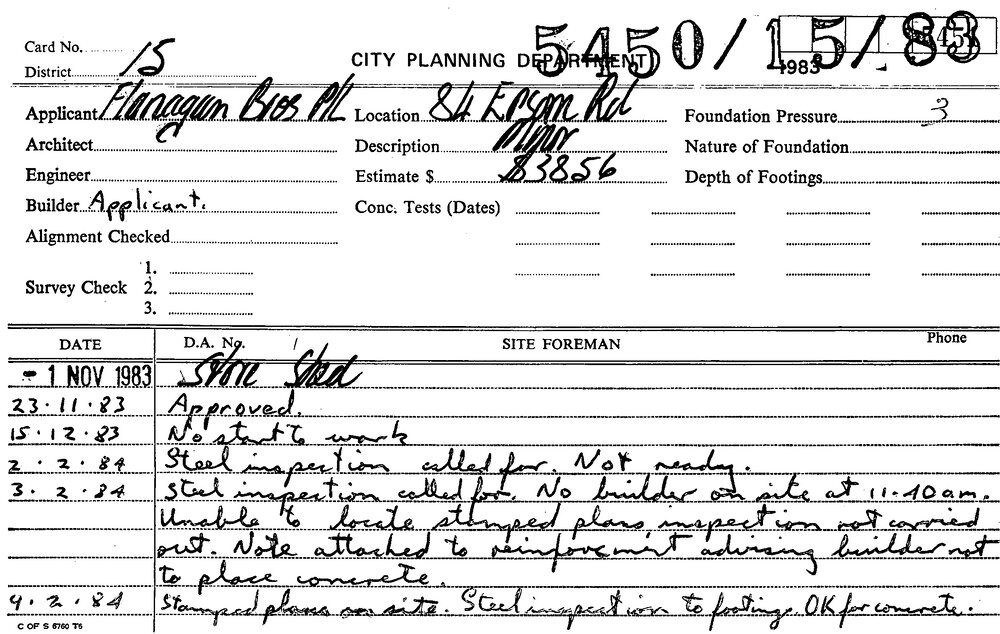 Card No. 15
5450/15/83
District
CITY PLANNING DEPARTMENT
1983
Applicant Flanagan Bros P/L
Location 84 Epsom Rd
Foundation Pressure 3
Architect
Description Minor
Nature of Foundation
Engineer
Estimate $ $3856
Depth of Footings
Builder Applicant.
Conc. Tests (Dates)
Alignment Checked
1.
Survey Check 2.
3.
DATE D.A. No. / SITE FOREMAN Phone
- 1 NOV 1983 Store Shed
23.11.83 Approved.
15.12.83 No start to work
2.2.84 Steel inspection called for. Not ready.
3.2.84 Steel inspection called for. No builder on site at 11.40am.
Unable to locate stamped plans inspection not carried
out. Note attached to reinforcement advising builder not
to place concrete.
4.2.84 Stamped plans on site. Steel inspection to footings. OK for concrete.
C OF S 6760 T6